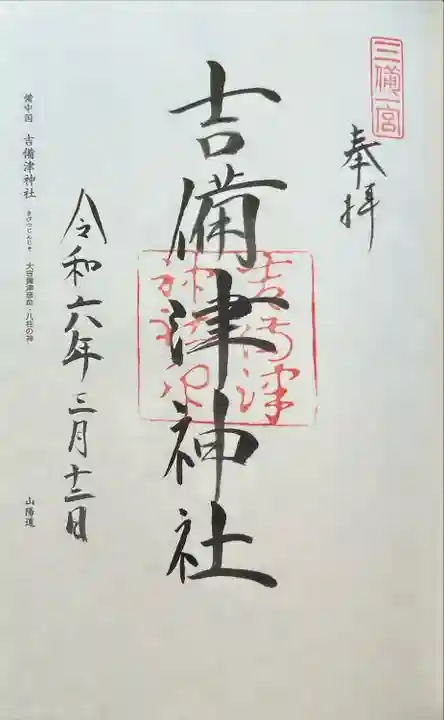 三備一宮
奉拝
吉備津神社
吉備津
神社
令和六年三月十二日
備中国 吉備津神社 きびつじんじゃ 大吉備津彦命・八柱の神 山陽道